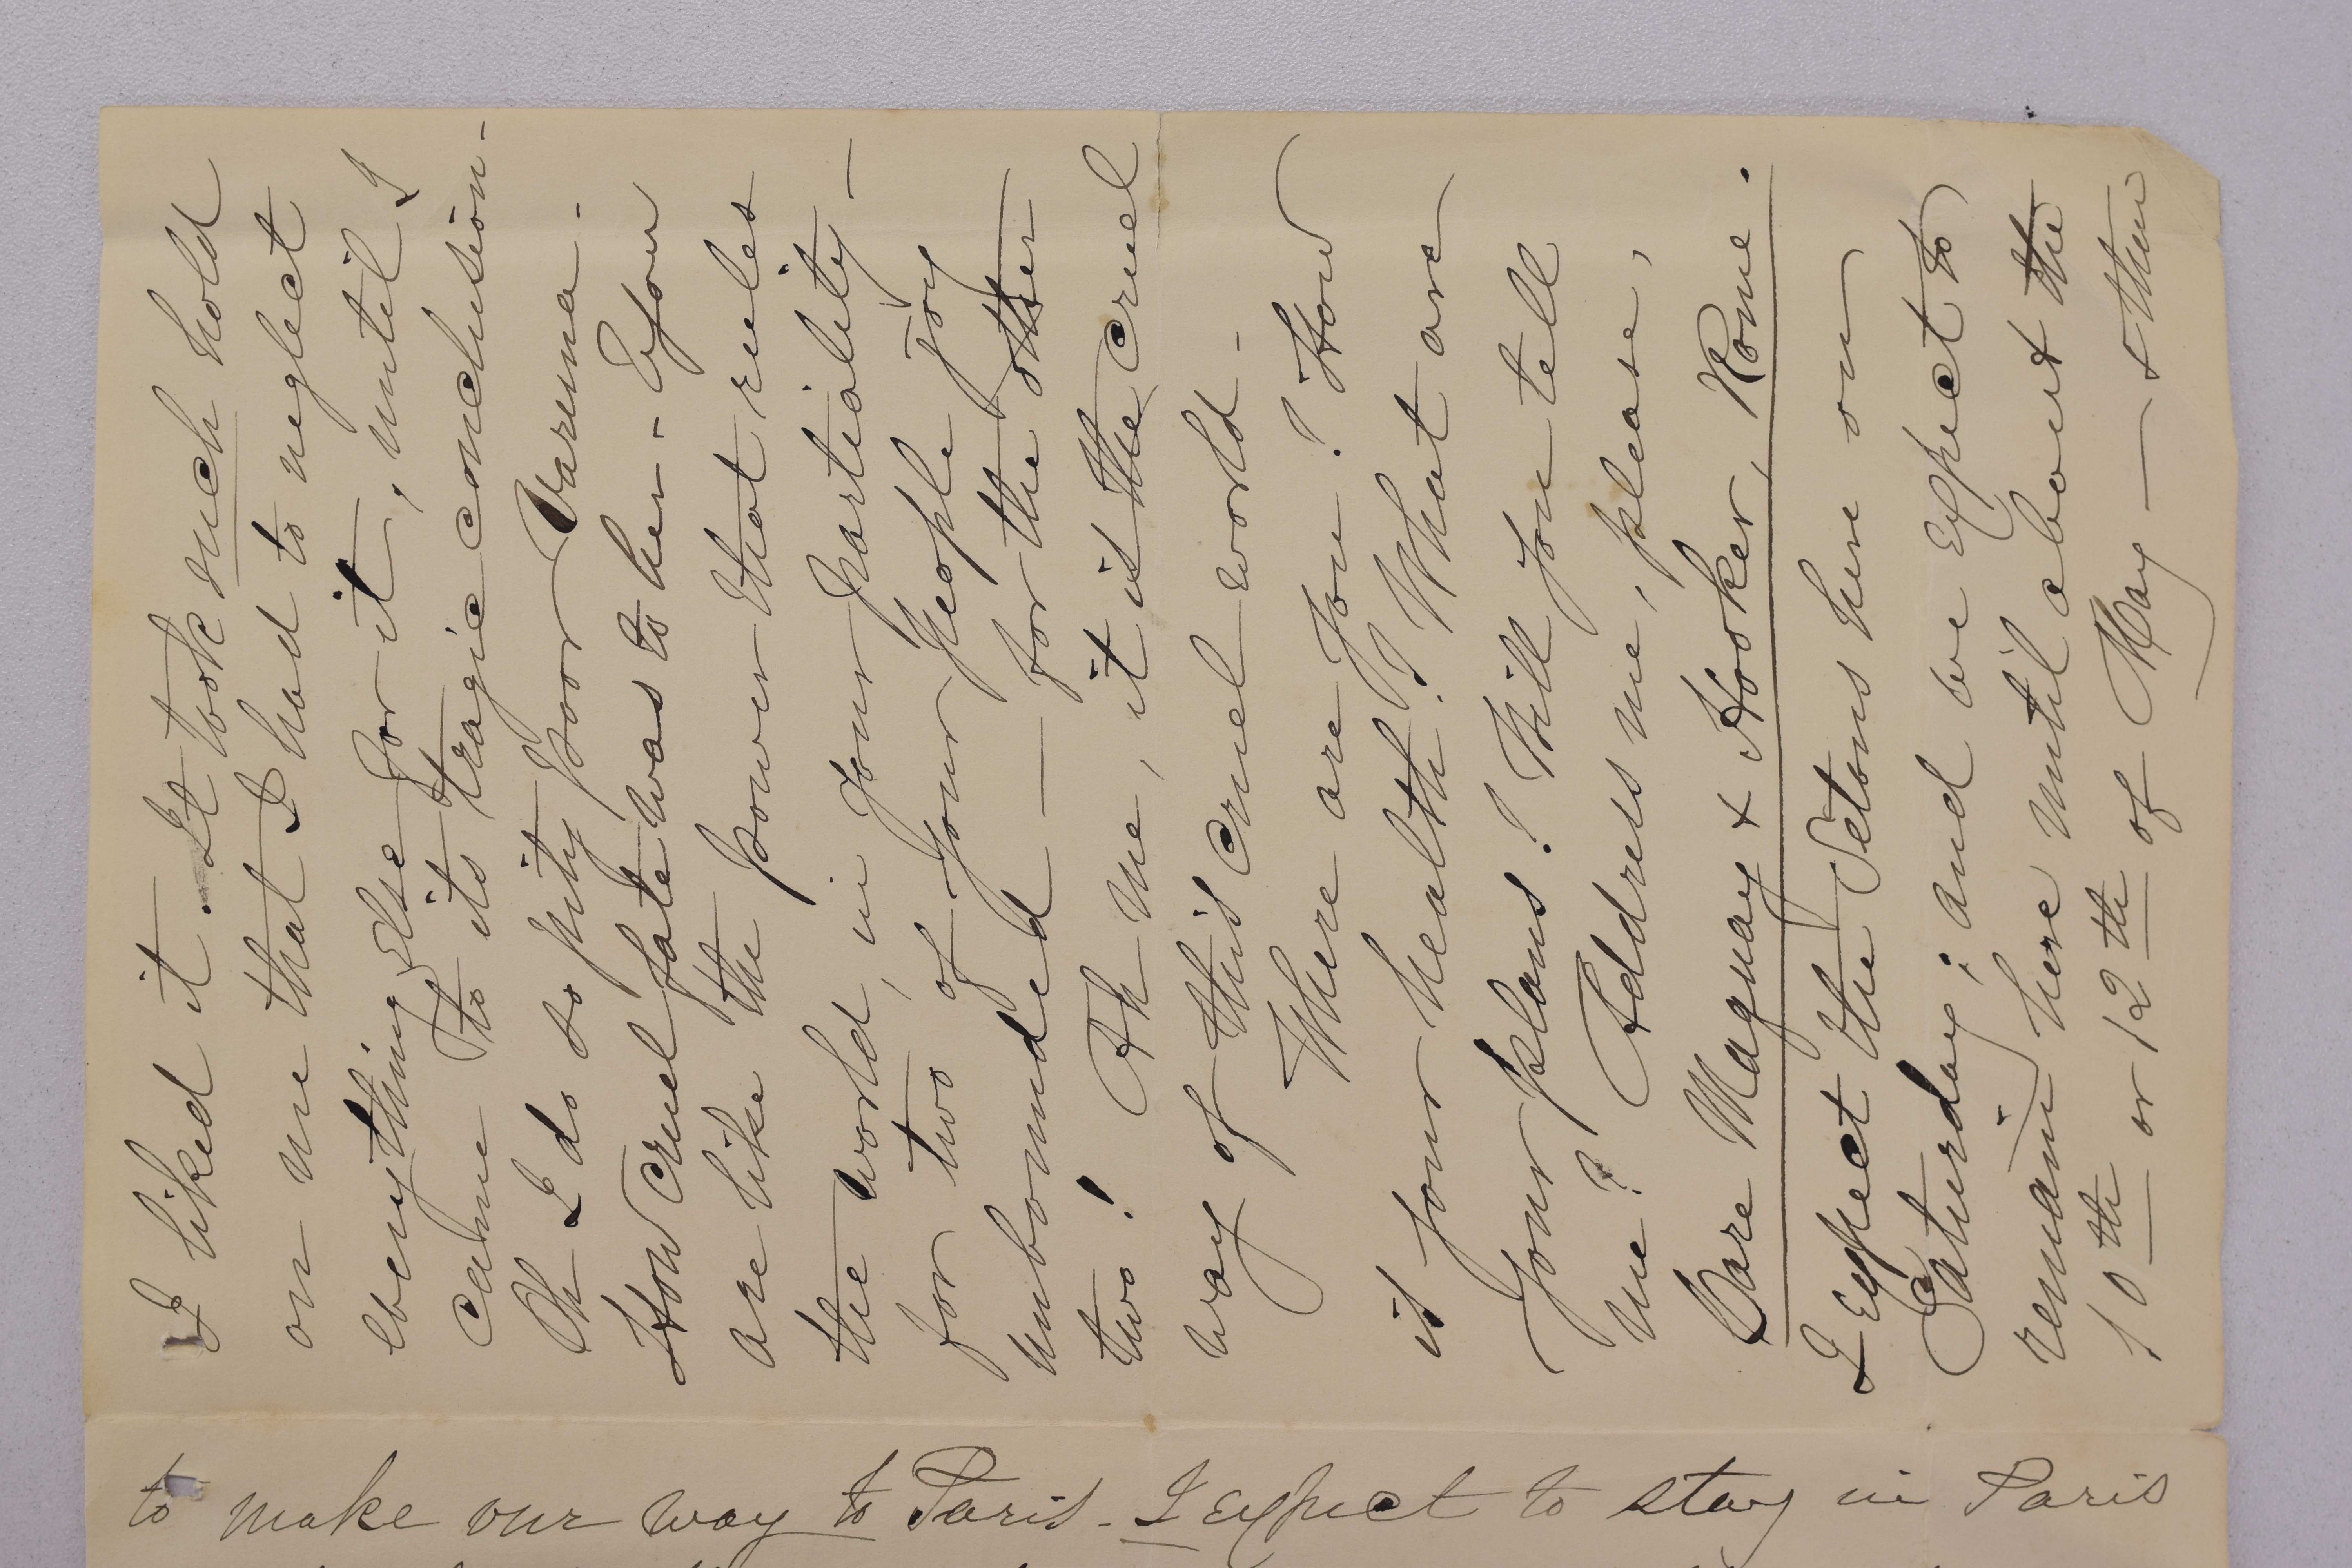 I liked it. It took such hold
on me that I had to neglect
everything else for it, until I
came to its tragic conclusion-
Oh I do so pity poor Varuna -
How cruel fate was to her - - You
are like the power that rules
the world, in your partiality -
for two of your people Joy
unbounded — for the other
two! Ah me, it is the cruel
way of this cruel world -
Where are you? How
is your health? What are
your plans? Will you tell
me? Address me, please,
Care Maquay & Hooker, Rome.
I expect the Setons here on
Saturday; and we expect to
remain here until about the
10th or 12th of May — & then
to make our way to Paris - I expect to stay in Paris